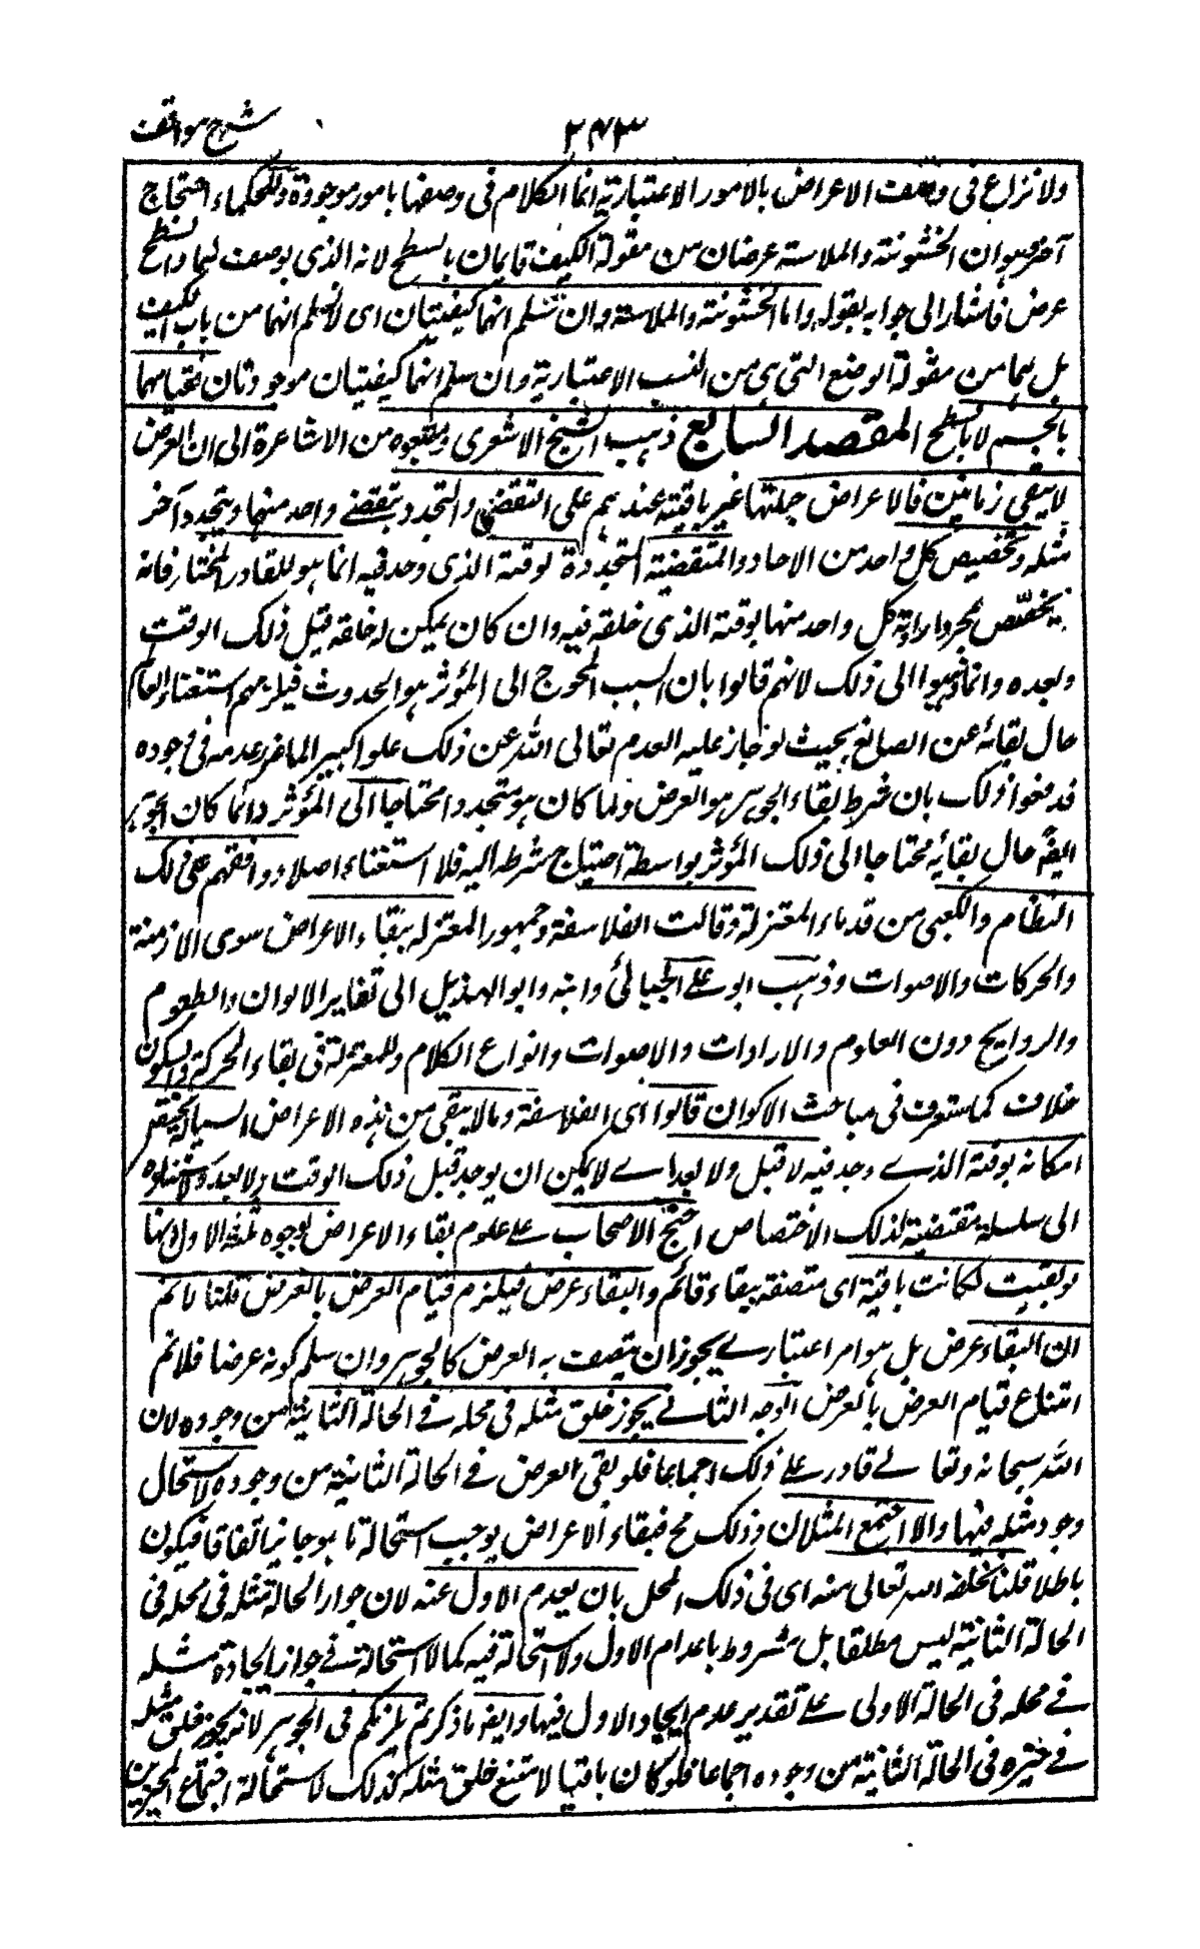 شرح مواقف
۲۴۳
ولا نزاع فى وصف الاعراض بالامور الاعتبارية انما الكلام فى وصفها بامور موجودة وللحكماء احتجاج
آخر وهو ان الخشونة والملاسة عرضان من مقولة الكيف قايمان بالسطح لانه الذى يوصف بهما والسطح
عرض فاشار الى جوابه بقوله واما الخشونة والملاسة وان نسلم انهما كيفيتان اى لا نسلم انهما من باب الكيف
بل هما من مقولة الوضع التى هى من النسب الاعتبارية وان سلم انهما كيفيتان موجودتان فقيامهما
بالجسم لا بالسطح المقصد السابع ذهب الشيخ الاشعرى ومتبعوه من الاشاعرة الى ان العرض
لا يبقى زمانين فالاعراض جملتها غير باقية عندهم على التقضى والتجدد ينقضے واحد منها ويتجدد آخر
مثله وتخصيص كل واحد من الاحاد المتقضية المتجددة لوقته الذى وجد فيه انما هو للقادر المختار فانه
يخصّص بمجرد ارادته كل واحد منها بوقته الذى خلقه فيه وان كان يمكن له خلقه قبل ذلك الوقت
وبعده وانما ذهبوا الى ذلك لانهم قالوا بان السبب المحوج الى المؤثر هو الحدوث فيلزمهم استغناء العالم
حال بقائه عن الصانع بحيث لو جاز عليه العدم تعالى الله عن ذلك علوا كبيرا لما ضر عدمه فى وجوده
فدفعوا ذلك بان شرط بقاء الجوهر هو العرض ولما كان هو متجددا محتاجا الى المؤثر دائما كان الجوهر
ايضا حال بقائه محتاجا الى ذلك المؤثر بواسطة احتياج شرطه اليه فلا استغناء اصلا ووافقهم على ذلك
النظام والكعبى من قدماء المعتزلة وقالت الفلاسفة وجمهور المعتزلة ببقاء الاعراض سوى الازمنة
والحركات والاصوات وذهب ابو علے الجبائى وابنه وابو الهذيل الى تغاير الالوان والطعوم
والروايح دون العلوم والارادات والاصوات وانواع الكلام وللمعتزلة فى بقاء الحركة والسكون
خلاف كما ستعرف فى مباحث الاكوان قالوا اى الفلاسفة وما لا يبقى من هذه الاعراض السيالة يختص
امكانه بوقته الذے وجد فيه لا قبل ولا بعد اے لا يمكن ان يوجد قبل ذلك الوقت ولا بعده لاستناده
الى سلسلة مقتضية لذلك الاختصاص احتج الاصحاب علے عدم بقاء الاعراض بوجوه ثلثة الاول انها
لو بقيت لكانت باقية اى متصفة ببقاء قائم والبقاء عرض فيلزم قيام العرض بالعرض قلنا لا نم
ان البقاء عرض بل هو امر اعتبارے يجوز ان يتصف به العرض كالجوهر وان سلم كونه عرضا فلا نم
امتناع قيام العرض بالعرض الوجه الثانے يجوز خلق مثله فى محله فے الحالة الثانية من وجوده لان
الله سبحانه وتعالے قادر علے ذلك اجماعا فلو بقى العرض فے الحالة الثانية من وجوده لاستحال
وجود مثله فيها والا اجتمع المثلان وذلك مح فبقاء الاعراض يوجب استحالة ما هو جايز اتفاقا فيكون
باطلا قلنا يخلقه الله تعالى منه اى فى ذلك المحل بان يعدم الاول عنه لان جواز الحالة مثله فى محله فى
الحالة الثانية ليس مطلقا بل مشروط باعدام الاول ولا استحالة فيه كما لا استحالة فے جواز ايجاده مثله
فے محله فى الحالة الاولى علے تقدير عدم ايجاد الاول فيها وايضا ما ذكرتم يلزمكم فى الجوهر لانه يجوز خلق مثله
فے حيزه فى الحالة الثانية من وجوده اجماعا فلو كان باقيا لامتنع خلق مثله كذلك لاستحالة اجتماع المتحيزين